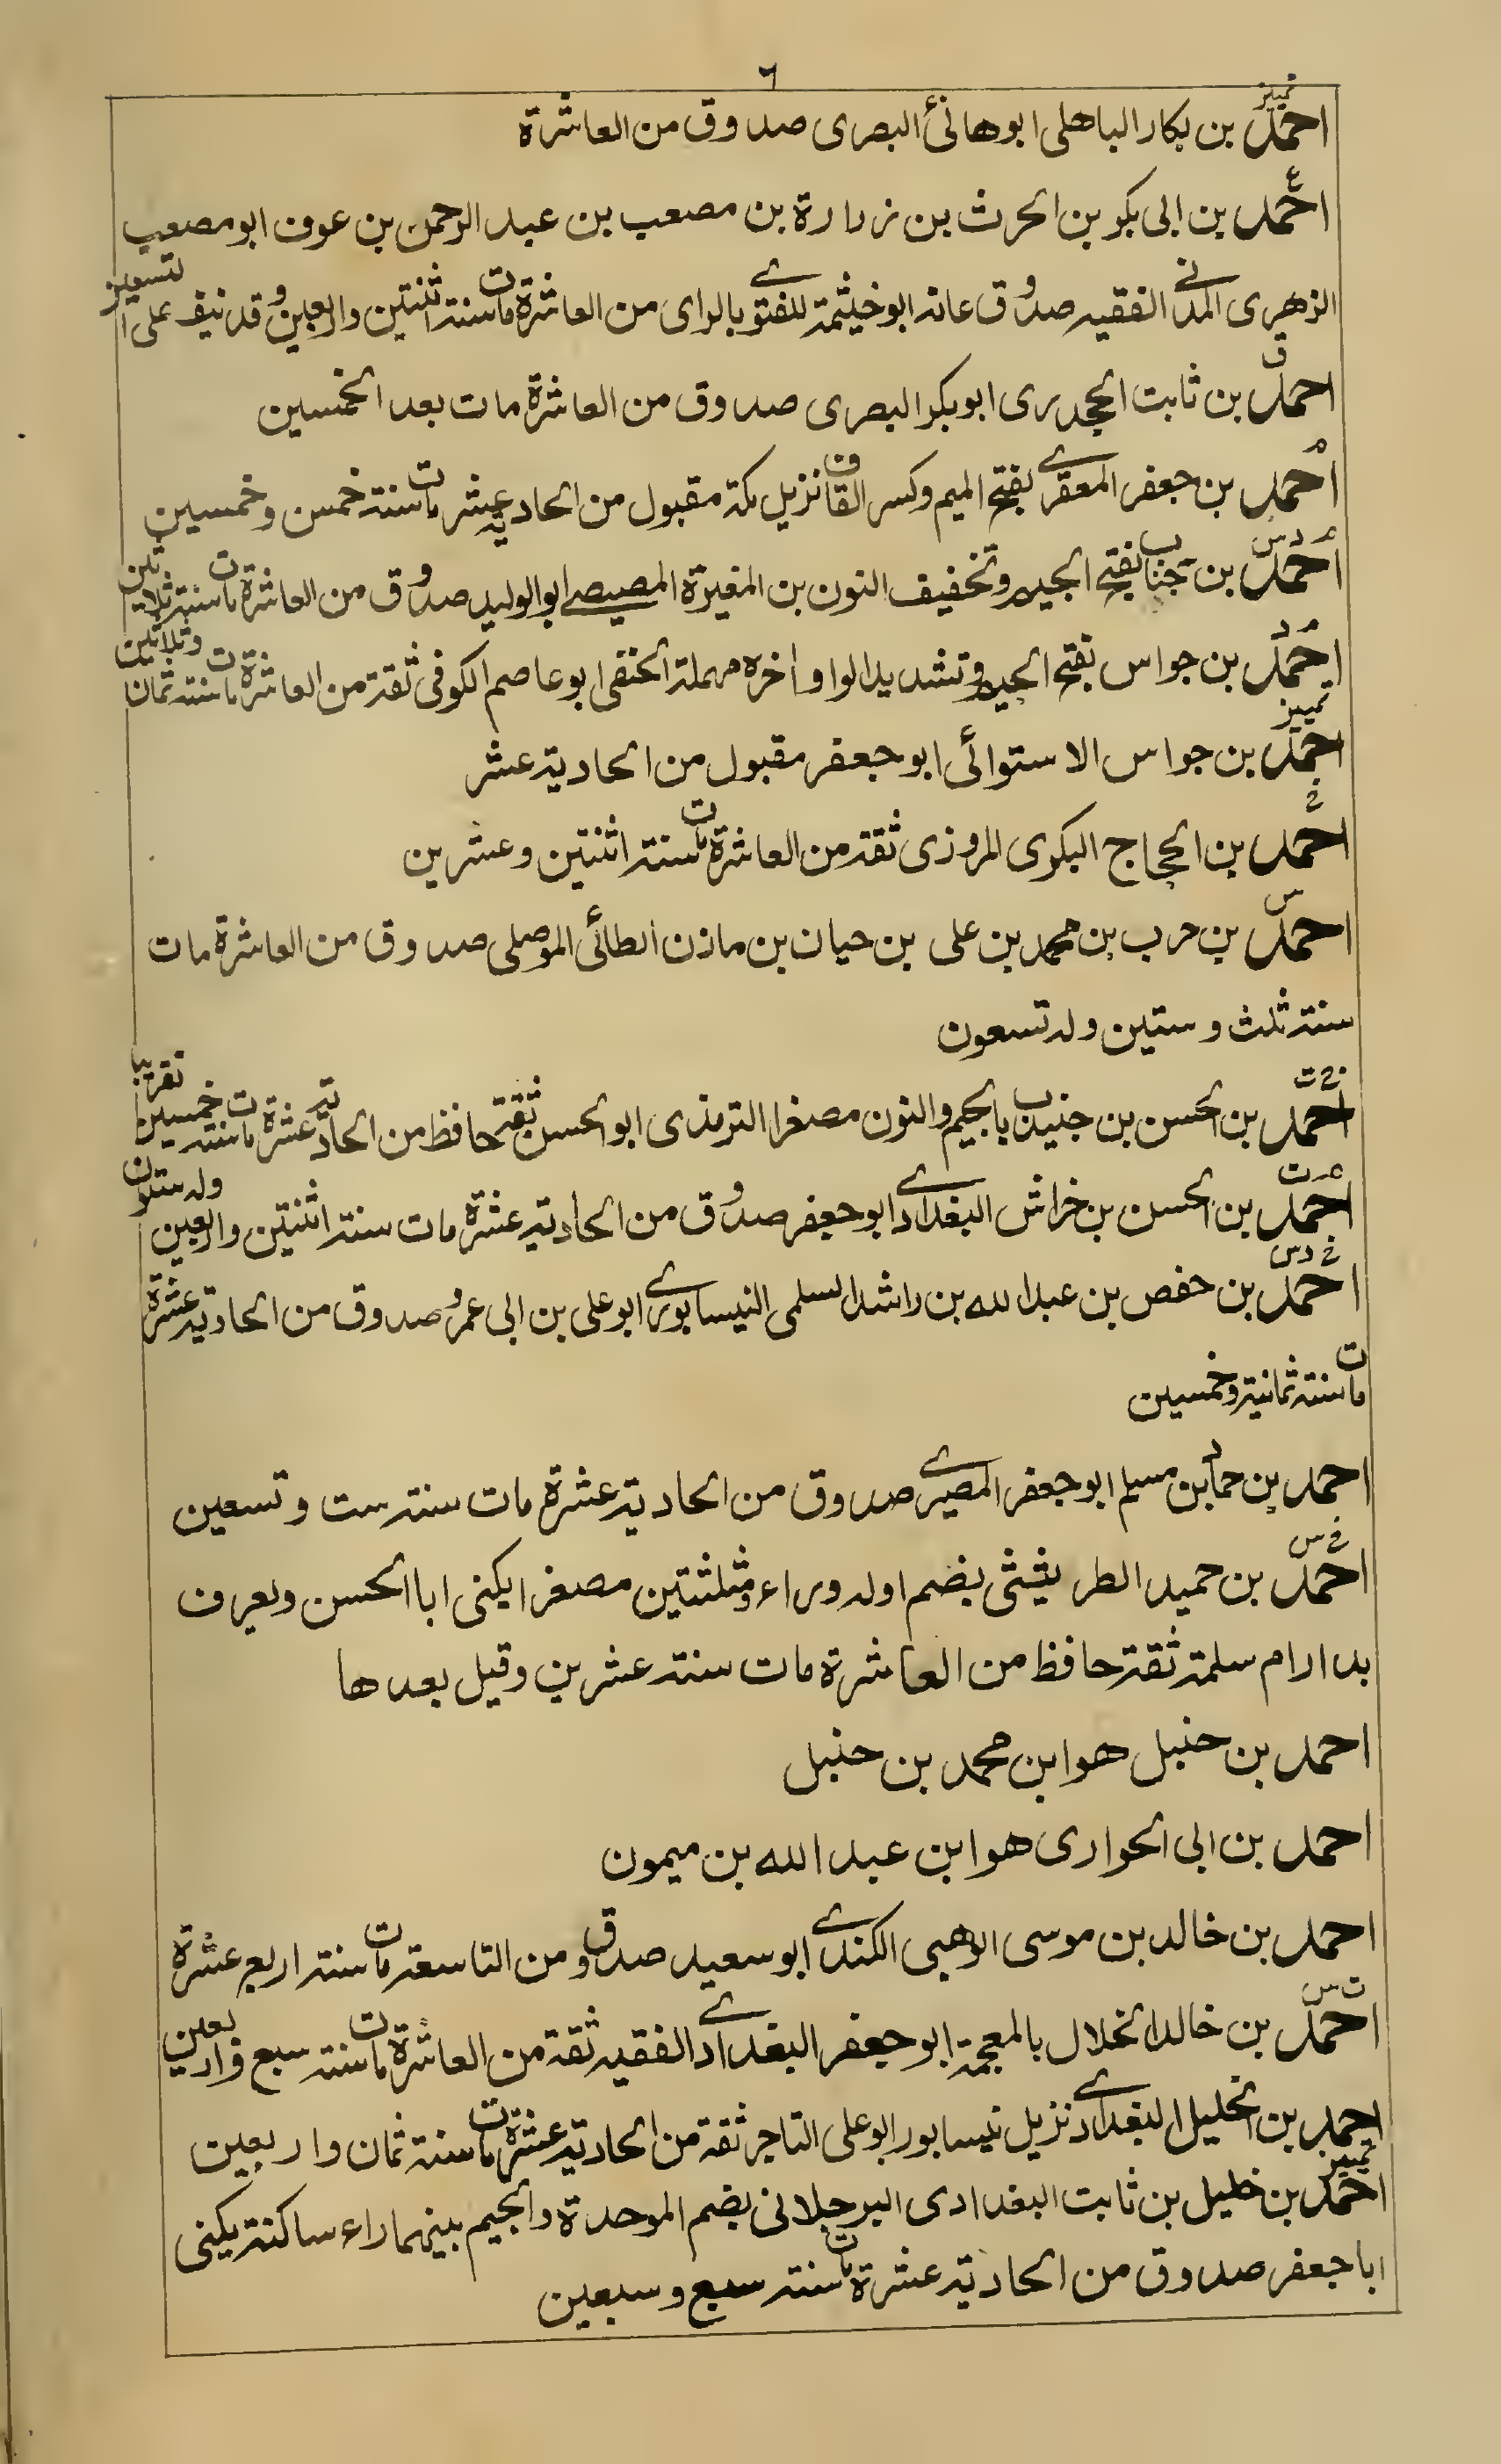 ٦
تمييز
احمد بن بكار الباهلى ابو هانئ البصرى صدوق من العاشرة
ع
احمد بن ابى بكر بن الحرث بن زرارة بن مصعب بن عبد الرحمن بن عوف ابو مصعب
الزهرى المدنى الفقيه صدوق عابه ابو خيثمة للفتوى بالراى من العاشرة مات سنة اثنتين واربعين وقد نيف على التسعين
ق
احمد بن ثابت الجحدرى ابو بكر البصرى صدوق من العاشرة مات بعد الخمسين
م
احمد بن جعفر المعقرى بفتح الميم وكسر القاف نزيل مكة مقبول من الحادية عشر مات سنة خمس وخمسين
م د س
احمد بن جناب بفتح الجيم وتخفيف النون بن المغيرة المصيصى ابو الوليد صدوق من العاشرة مات سنة ثلاثين
م د
احمد بن جواس بفتح الجيم وتشديد الواو اخره مهملة الحنفى ابو عاصم الكوفى ثقة من العاشرة مات سنة ثمان وثلاثين
تمييز
احمد بن جواس الاستوائى ابو جعفر مقبول من الحادية عشر
خ
احمد بن الحجاج البكرى المروزى ثقة من العاشرة مات سنة اثنتين وعشرين
س
احمد بن حرب بن محمد بن على بن حيان بن مازن الطائى الموصلى صدوق من العاشرة مات
سنة ثلث وستين وله تسعون
خ ت
احمد بن الحسن بن جنيدب بالجيم والنون مصغرا الترمذى ابو الحسن ثقة حافظ من الحادية عشرة مات سنة خمسين تقريبا
م ت
احمد بن الحسن بن خراش البغدادى ابو جعفر صدوق من الحادية عشرة مات سنة اثنتين واربعين وله ستون
خ د س
احمد بن حفص بن عبد الله بن راشد السلمى النيسابورى ابو على بن ابى عمرو صدوق من الحادية عشرة
مات سنة ثمانية وخمسين
احمد بن حماد بن مسلم ابو جعفر المصرى صدوق من الحادية عشرة مات سنة ست وتسعين
خ س
احمد بن حميد الطريثيثى بضم اوله وراء ومثلثتين مصغر ايكنى ابا الحسن ويعرف
بدار ام سلمة ثقة حافظ من العاشرة مات سنة عشرين وقيل بعدها
احمد بن حنبل هو ابن محمد بن حنبل
احمد بن ابى الحوارى هو ابن عبد الله بن ميمون
احمد بن خالد بن موسى الوهبى الكندى ابو سعيد صدوق من التاسعة مات سنة اربع عشرة
ت س
احمد بن خالد الخلال بالمعجمة ابو جعفر البغدادى الفقيه ثقة من العاشرة مات سنة سبع واربعين
احمد بن الخليل البغدادى نزيل نيسابور ابو على التاجر ثقة من الحادية عشرة مات سنة ثمان واربعين
تمييز
احمد بن خليل بن ثابت البغدادى البرجلانى بضم الموحدة والجيم بينهما راء ساكنة يكنى
ابا جعفر صدوق من الحادية عشرة مات سنة سبع وسبعين